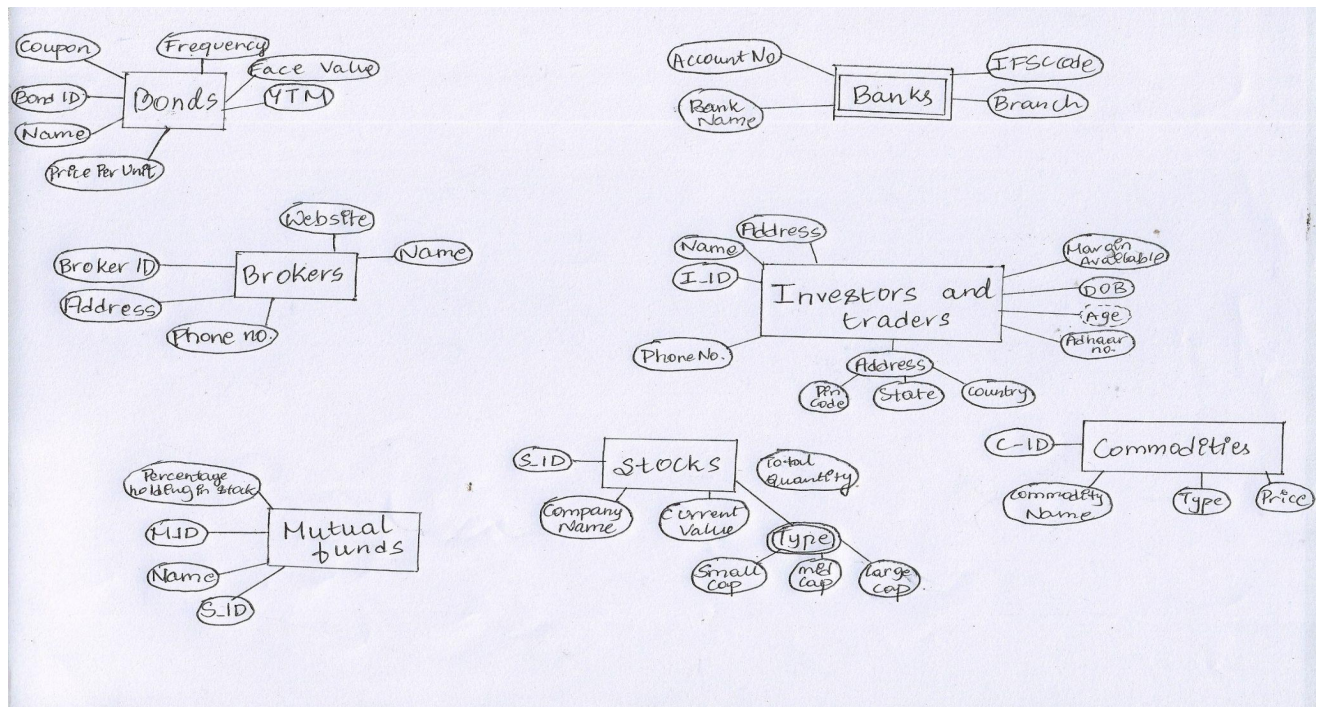 Coupon
Frequency
Face Value
Bond ID
Bonds
YTM
Name
Price Per Unit
Account No
IFSC Code
Banks
Bank
Name
Branch
Website
Broker ID
Brokers
Name
Address
Phone no.
Address
Name
Margin
Available
I_ID
Investors and
traders
DOB
Age
Adhaar
no.
Phone No.
Address
Pin
Code
State
Country
Percentage
holding in stock
M_ID
Mutual
funds
Name
S_ID
S_ID
Stocks
Total
Quantity
Company
Name
Current
Value
Type
Small
cap
mid
cap
large
cap
C-ID
Commodities
Commodity
Name
Type
Price